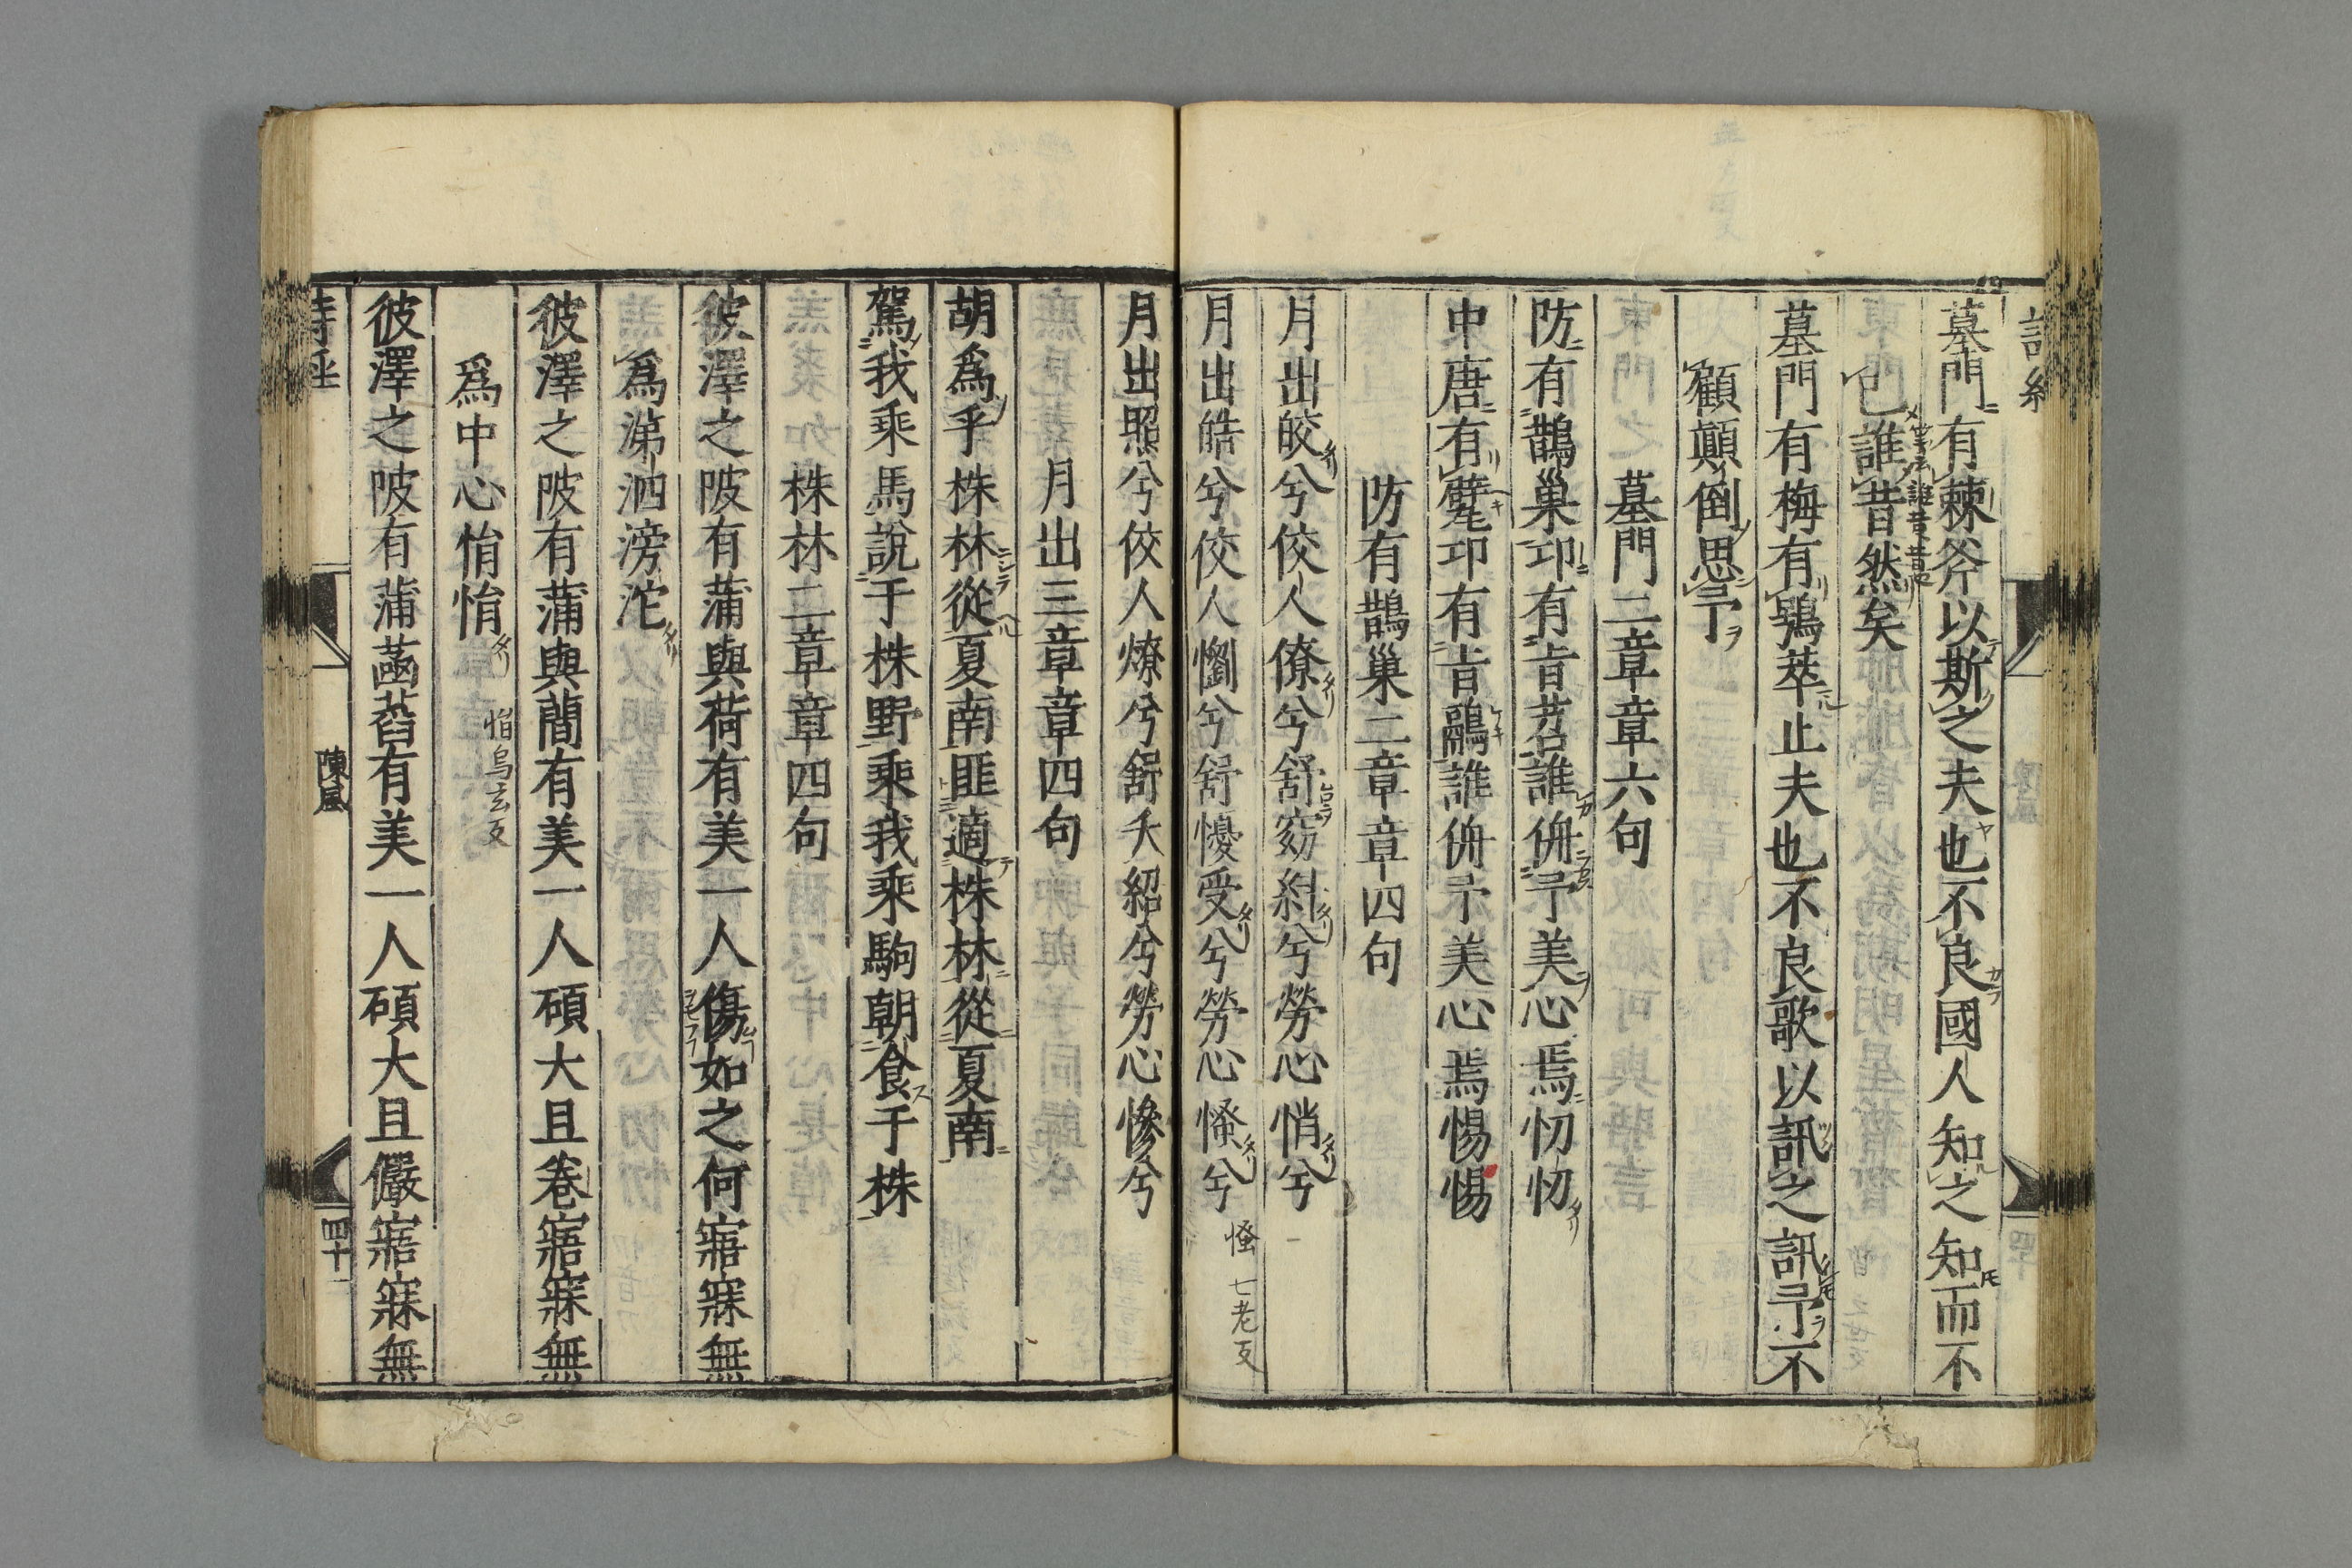 墓門有棘斧以斯之夫也不良國人知之知而不
已誰昔然矣
墓門有梅有鴞萃止夫也不良歌以訊之訊予不
顧顛倒思予
墓門二章章六句
防有鵲巢邛有旨苕誰侜予美心焉忉忉
中唐有甓邛有旨鷊誰侜予美心焉惕惕
防有鵲巢二章章四句
月出皎兮佼人僚兮舒窈糾兮勞心悄兮
月出皓兮佼人懰兮舒懮受兮勞心慅兮 慅 七老反
月出照兮佼人燎兮舒夭紹兮勞心慘兮
月出三章章四句
胡爲乎株林從夏南匪適株林從夏南
駕我乘馬說于株野乘我乘駒朝食于株
株林二章章四句
彼澤之陂有蒲與荷有美一人傷如之何寤寐無
爲涕泗滂沱
彼澤之陂有蒲與蕑有美一人碩大且卷寤寐無
爲中心悁悁 悁烏玄反
彼澤之陂有蒲菡萏有美一人碩大且儼寤寐無
陳風
四十一